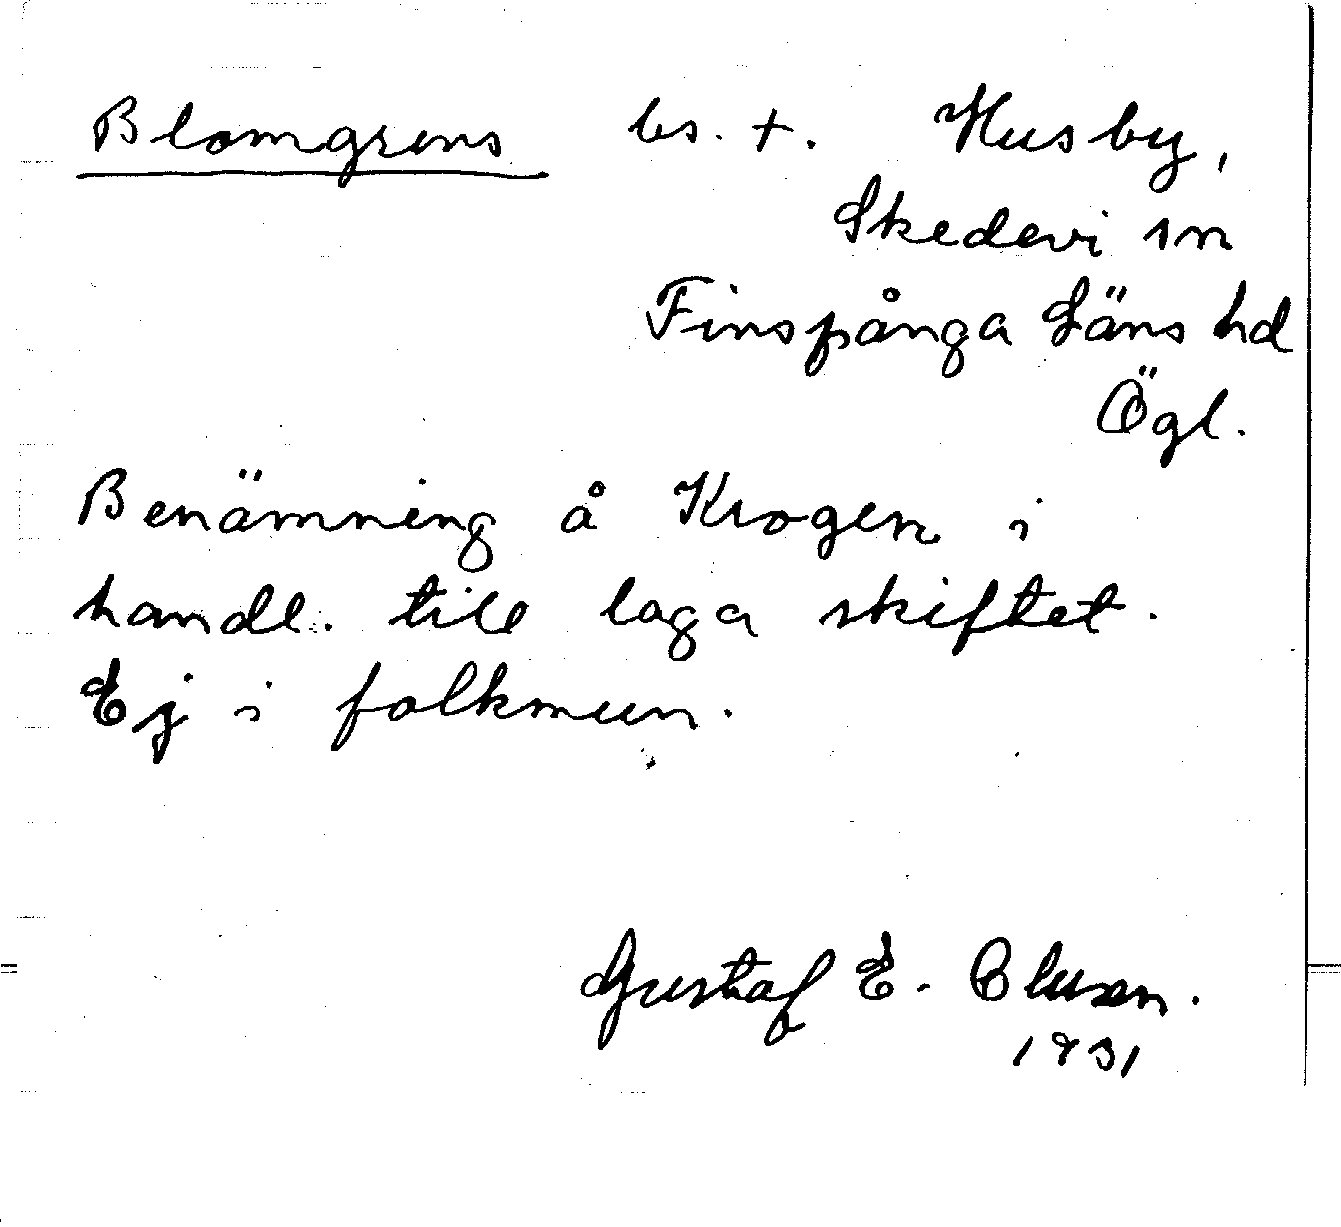 Blomgrens bs. +. Husby,
Skedevi sn
Finspånga Läns hd
Ögl.
Benämning å Krogen i
handl. till laga skiftet.
Ej i folkmun.
Gustaf E. Clusen.
1931